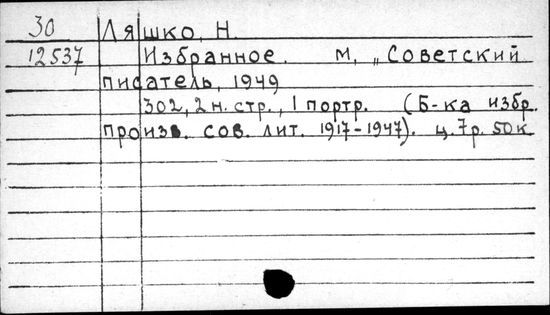 30 Ляшко, Н.
12537 Избранное. М, „Советский
писатель, 1949
302, 2 н. стр., 1 портр. (Б-ка избр.
произв. сов. лит. 1917-1947). ц. 7 р. 50 к